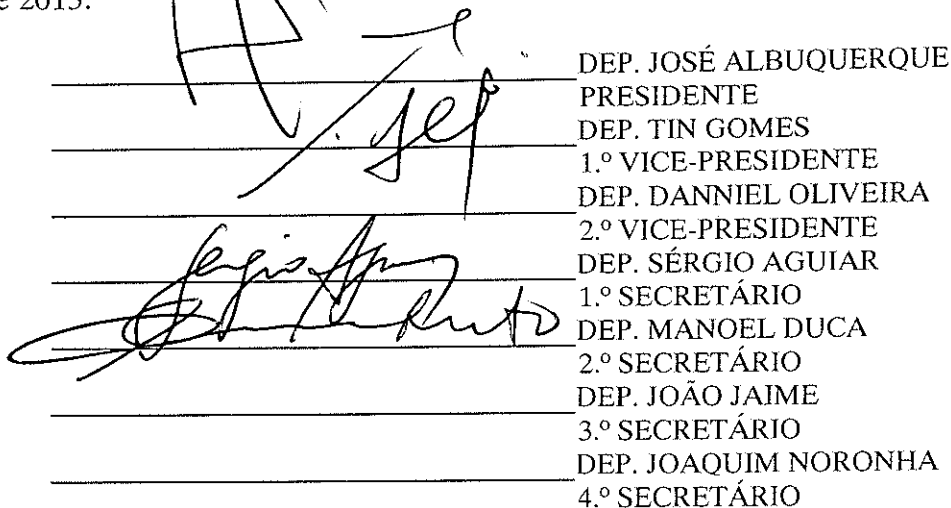 e 2015.
DEP. JOSÉ ALBUQUERQUE
PRESIDENTE
DEP. TIN GOMES
1.º VICE-PRESIDENTE
DEP. DANNIEL OLIVEIRA
2.º VICE-PRESIDENTE
Sérgio Aguiar
DEP. SÉRGIO AGUIAR
1.º SECRETÁRIO
DEP. MANOEL DUCA
2.º SECRETÁRIO
DEP. JOÃO JAIME
3.º SECRETÁRIO
DEP. JOAQUIM NORONHA
4.º SECRETÁRIO